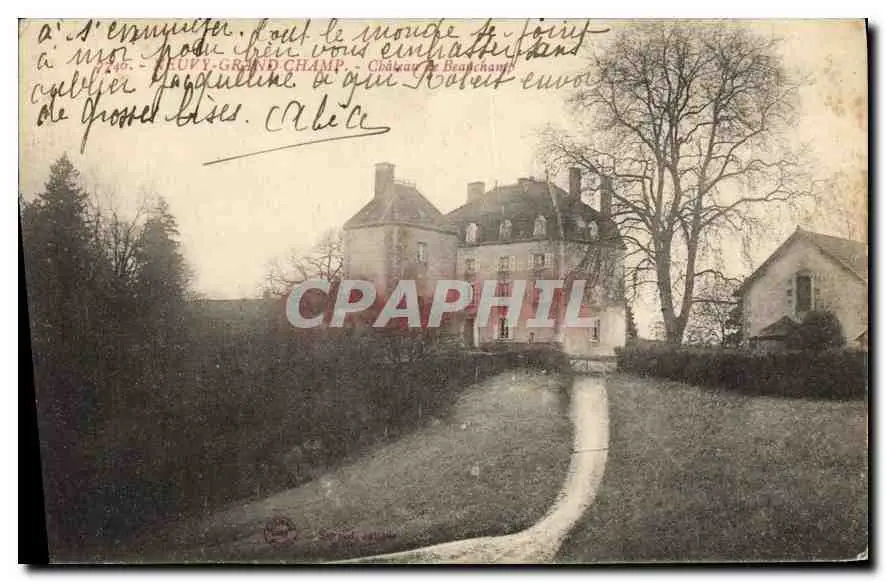 à s'ennuyer. Tout le monde se joint
à moi pour bien vous embrasser sans
oublier Jacqueline à qui Robert envoi
de grosses bises. Cabec
NEUVY-GRAND CHAMP. - Château de Beauchamp
CPARAMA.COM